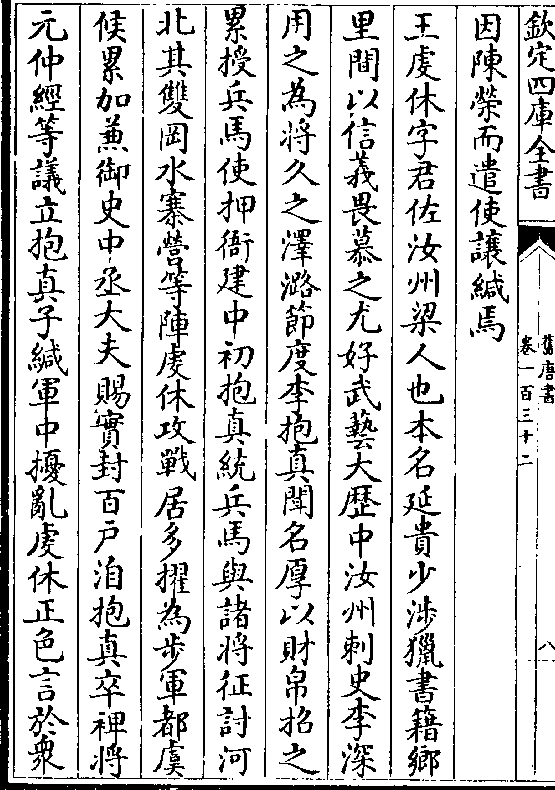 欽定四庫全書
舊唐書
卷一百三十二
八
因陳榮而遣使讓緘焉
王虔休字君佐汝州梁人也本名延貴少涉獵書籍鄉
里間以信義畏慕之尤好武藝大歴中汝州刺史李深
用之為將久之澤潞節度李抱真聞名厚以財帛招之
累授兵馬使押衙建中初抱真統兵馬與諸將征討河
北其雙岡水寨營等陣虔休攻戰居多擢為步軍都虞
候累加兼御史中丞大夫賜實封百戸洎抱真卒裨將
元仲經等議立抱真子緘軍中擾亂虔休正色言於衆